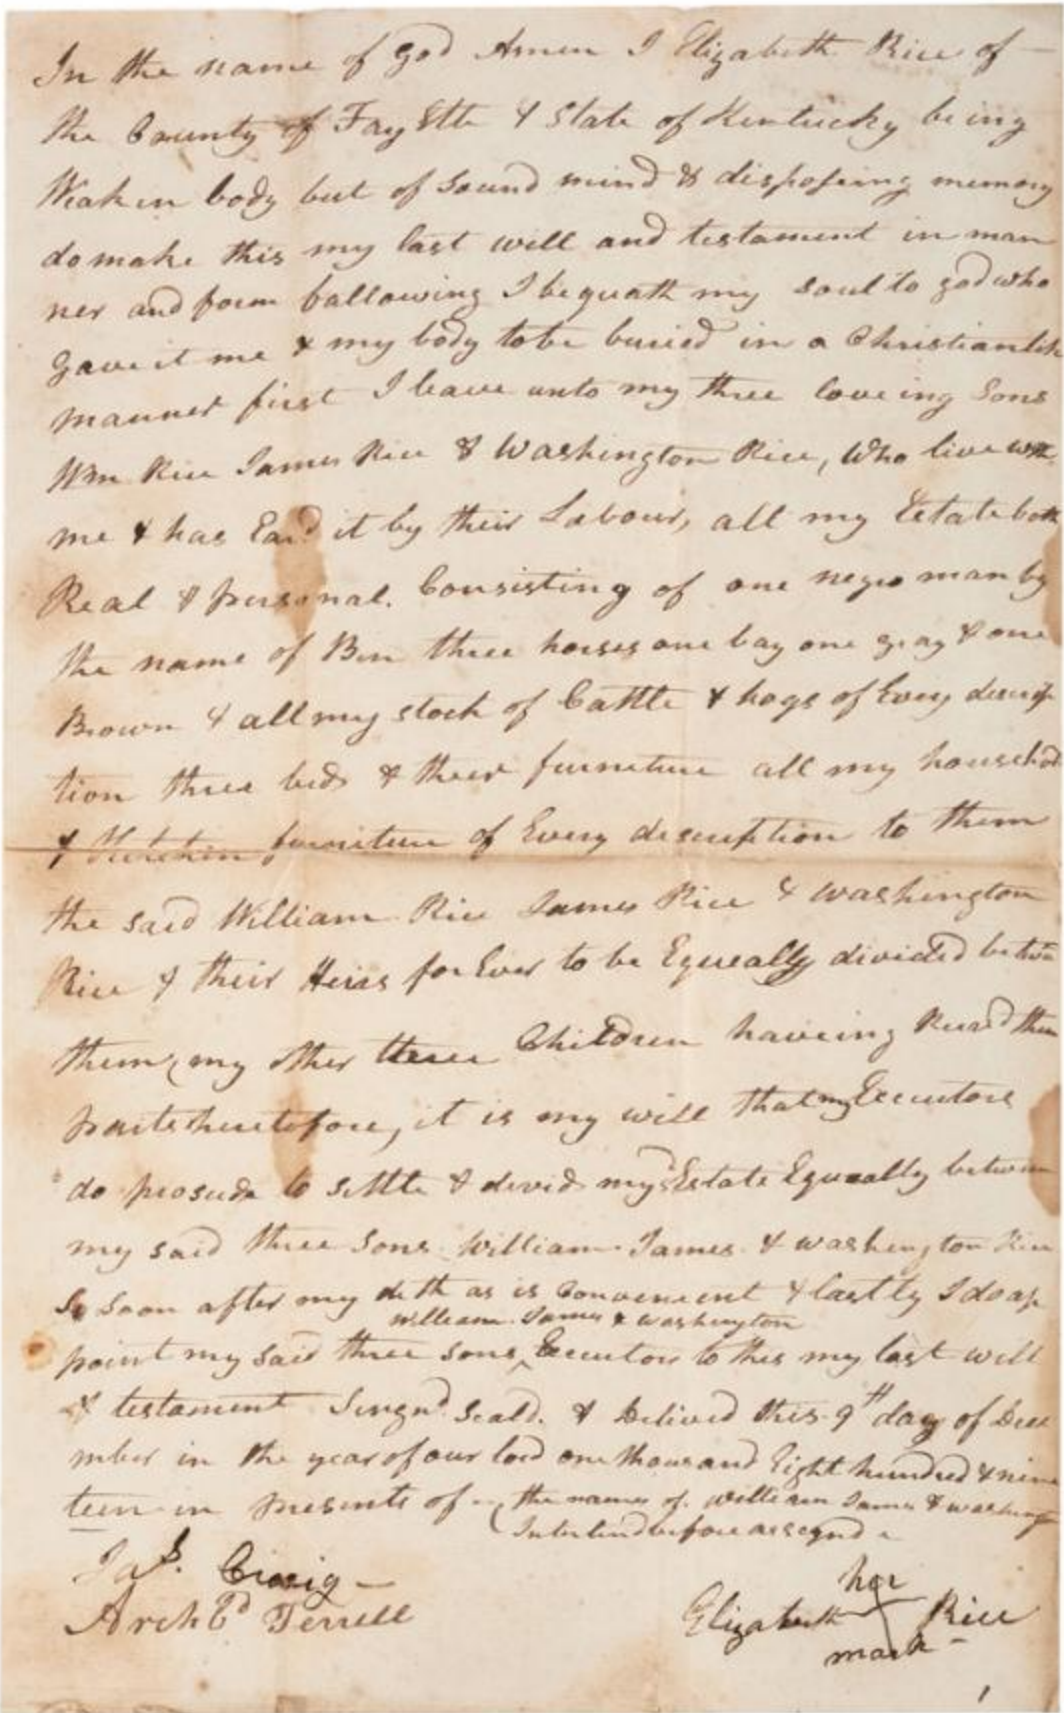 In the name of God Amen I Elizabeth Rice of
the County of Fayette & State of Kentucky being
Weak in body but of Sound mind & disposeing memory
do make this my last will and testament in man
ner and form following I bequath my soul to god who
gave it me & my body to be buried in a Christianlike
manner first I leave unto my three loveing Sons
Wm Rice James Rice & Washington Rice, Who live with
me & has Earnd it by their Labour, all my Estate both
Real & personal. Consisting of one negro man by
the name of Ben three horses one bay one gray & one
Brown & all my stock of Cattle & hogs of Every descrip
tion three beds & their furneture all my household
& Kitchin furniture of Every description to them
the said William Rice James Rice & Washington
Rice & their Heirs for Ever to be Equeally divided between
them (my other three Children haveing Recevd their
parts heretofore, it is my will that my Executors
do prosude to settle & devid my Estate Equeally between
my said three Sons William James & washington Rice
So Soon after my deth as is Convenient & lastly I do ap
william James & washington
point my said three sons ^ Executors to this my last will
& testament Singnd Seald. & Delived this 9th day of Dece
mber in the year of our lord one thousand Eight hundred & nine
teen in presents of - (the names of william James & washington
Interlind before assegnd -
Jas. Craig -
Archbd Terrell
her
Elizabeth Rice
mark -